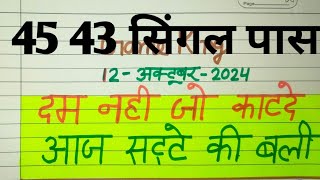 45 43 सिंगल पास
12-अक्टूबर-2024
दम नही जो काटदे
आज सट्टे की बली